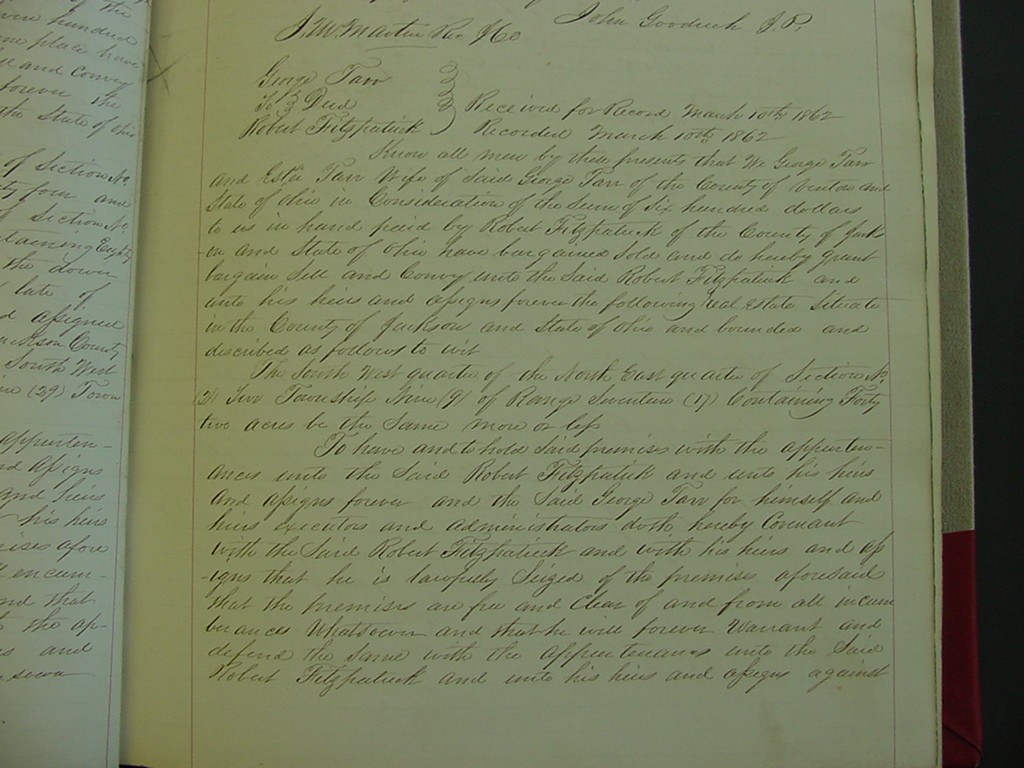 of the
hundred
place have
and Convey
forever the
the State of ohio
of Section No
form and
of Section No
containing Eighty
the down
late of
assigned
Jackson County
South West
(29) Town
apperten-
and assigns
and heirs
his heirs
afore
encum-
and that
the ap-
and
John Goodrich J.P.
J.W. Martin Rec J Co
George Tarr
To } Deed
Robert Fitzpatrick
Received for Record March 10th 1862
Recorded March 10th 1862
Know all men by these presents that We George Tarr
and Ester Tarr Wife of Said George Tarr of the County of Venton and
State of Ohio in Consideration of the Sum of Six hundred dollars
to us in hand paid by Robert Fitzpatrick of the County of Jack-
on and State of Ohio have bargained Sold and do hereby grant
bargain Sell and Convey unto the Said Robert Fitzpatrick and
unto his heirs and assigns forever the following real estate Situate
in the County of Jackson and State of Ohio and bounded and
described as follows to wit
The South West quarter of the North East quarter of Section No
(2) Two Township Nine (9) of Range Seventeen (17) Containing Forty
two acres be the Same more or less
To have and to hold Said premises with the apperten-
ances unto the Said Robert Fitzpatrick and unto his heirs
and assigns forever and the Said George Tarr for himself and
heirs executors and administrators doth hereby Covenant
with the Said Robert Fitzpatrick and with his heirs and as
-igns that he is lawfully Seized of the premises aforesaid
that the premises are free and Clear of and from all incum
berances Whatsoever and that he will forever Warrant and
defend the Same with the appertenances unto the Said
Robert Fitzpatrick and unto his heirs and assigns against